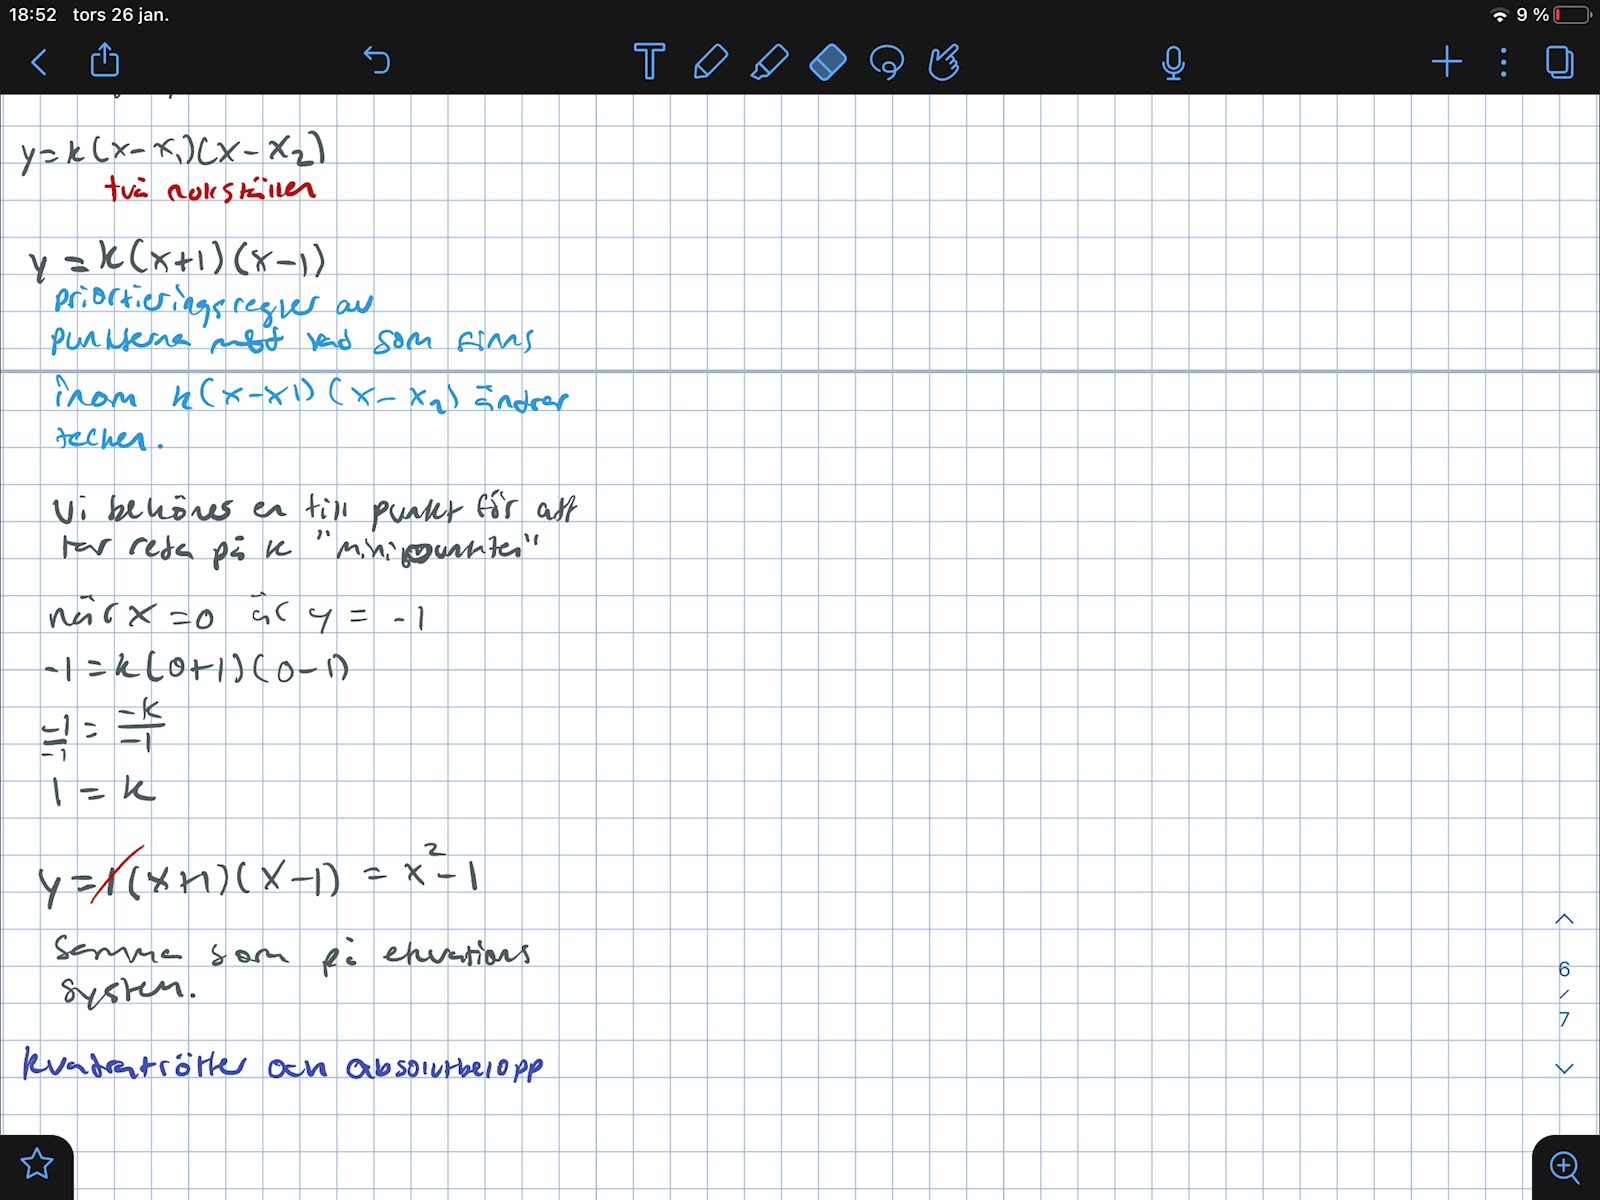 18:52 tors 26 jan. 9 %
y=k(x-x₁)(x-x₂)
två nollställen
y=k(x+1)(x-1)
priortieringsregler av
punkterna med vad som finns
inom k(x-x1)(x-x₂) ändrar
tecken.
Vi behöves en till punkt för att
tar reda på k "minipunkten"
när x=0 är y= -1
-1=k(0+1)(0-1)
-1/-1 = -k/-1
1=k
y=1(x+1)(x-1) = x²-1
Samma som på ekvations
system.
kvadratrötter och absolutbelopp
6
/
7